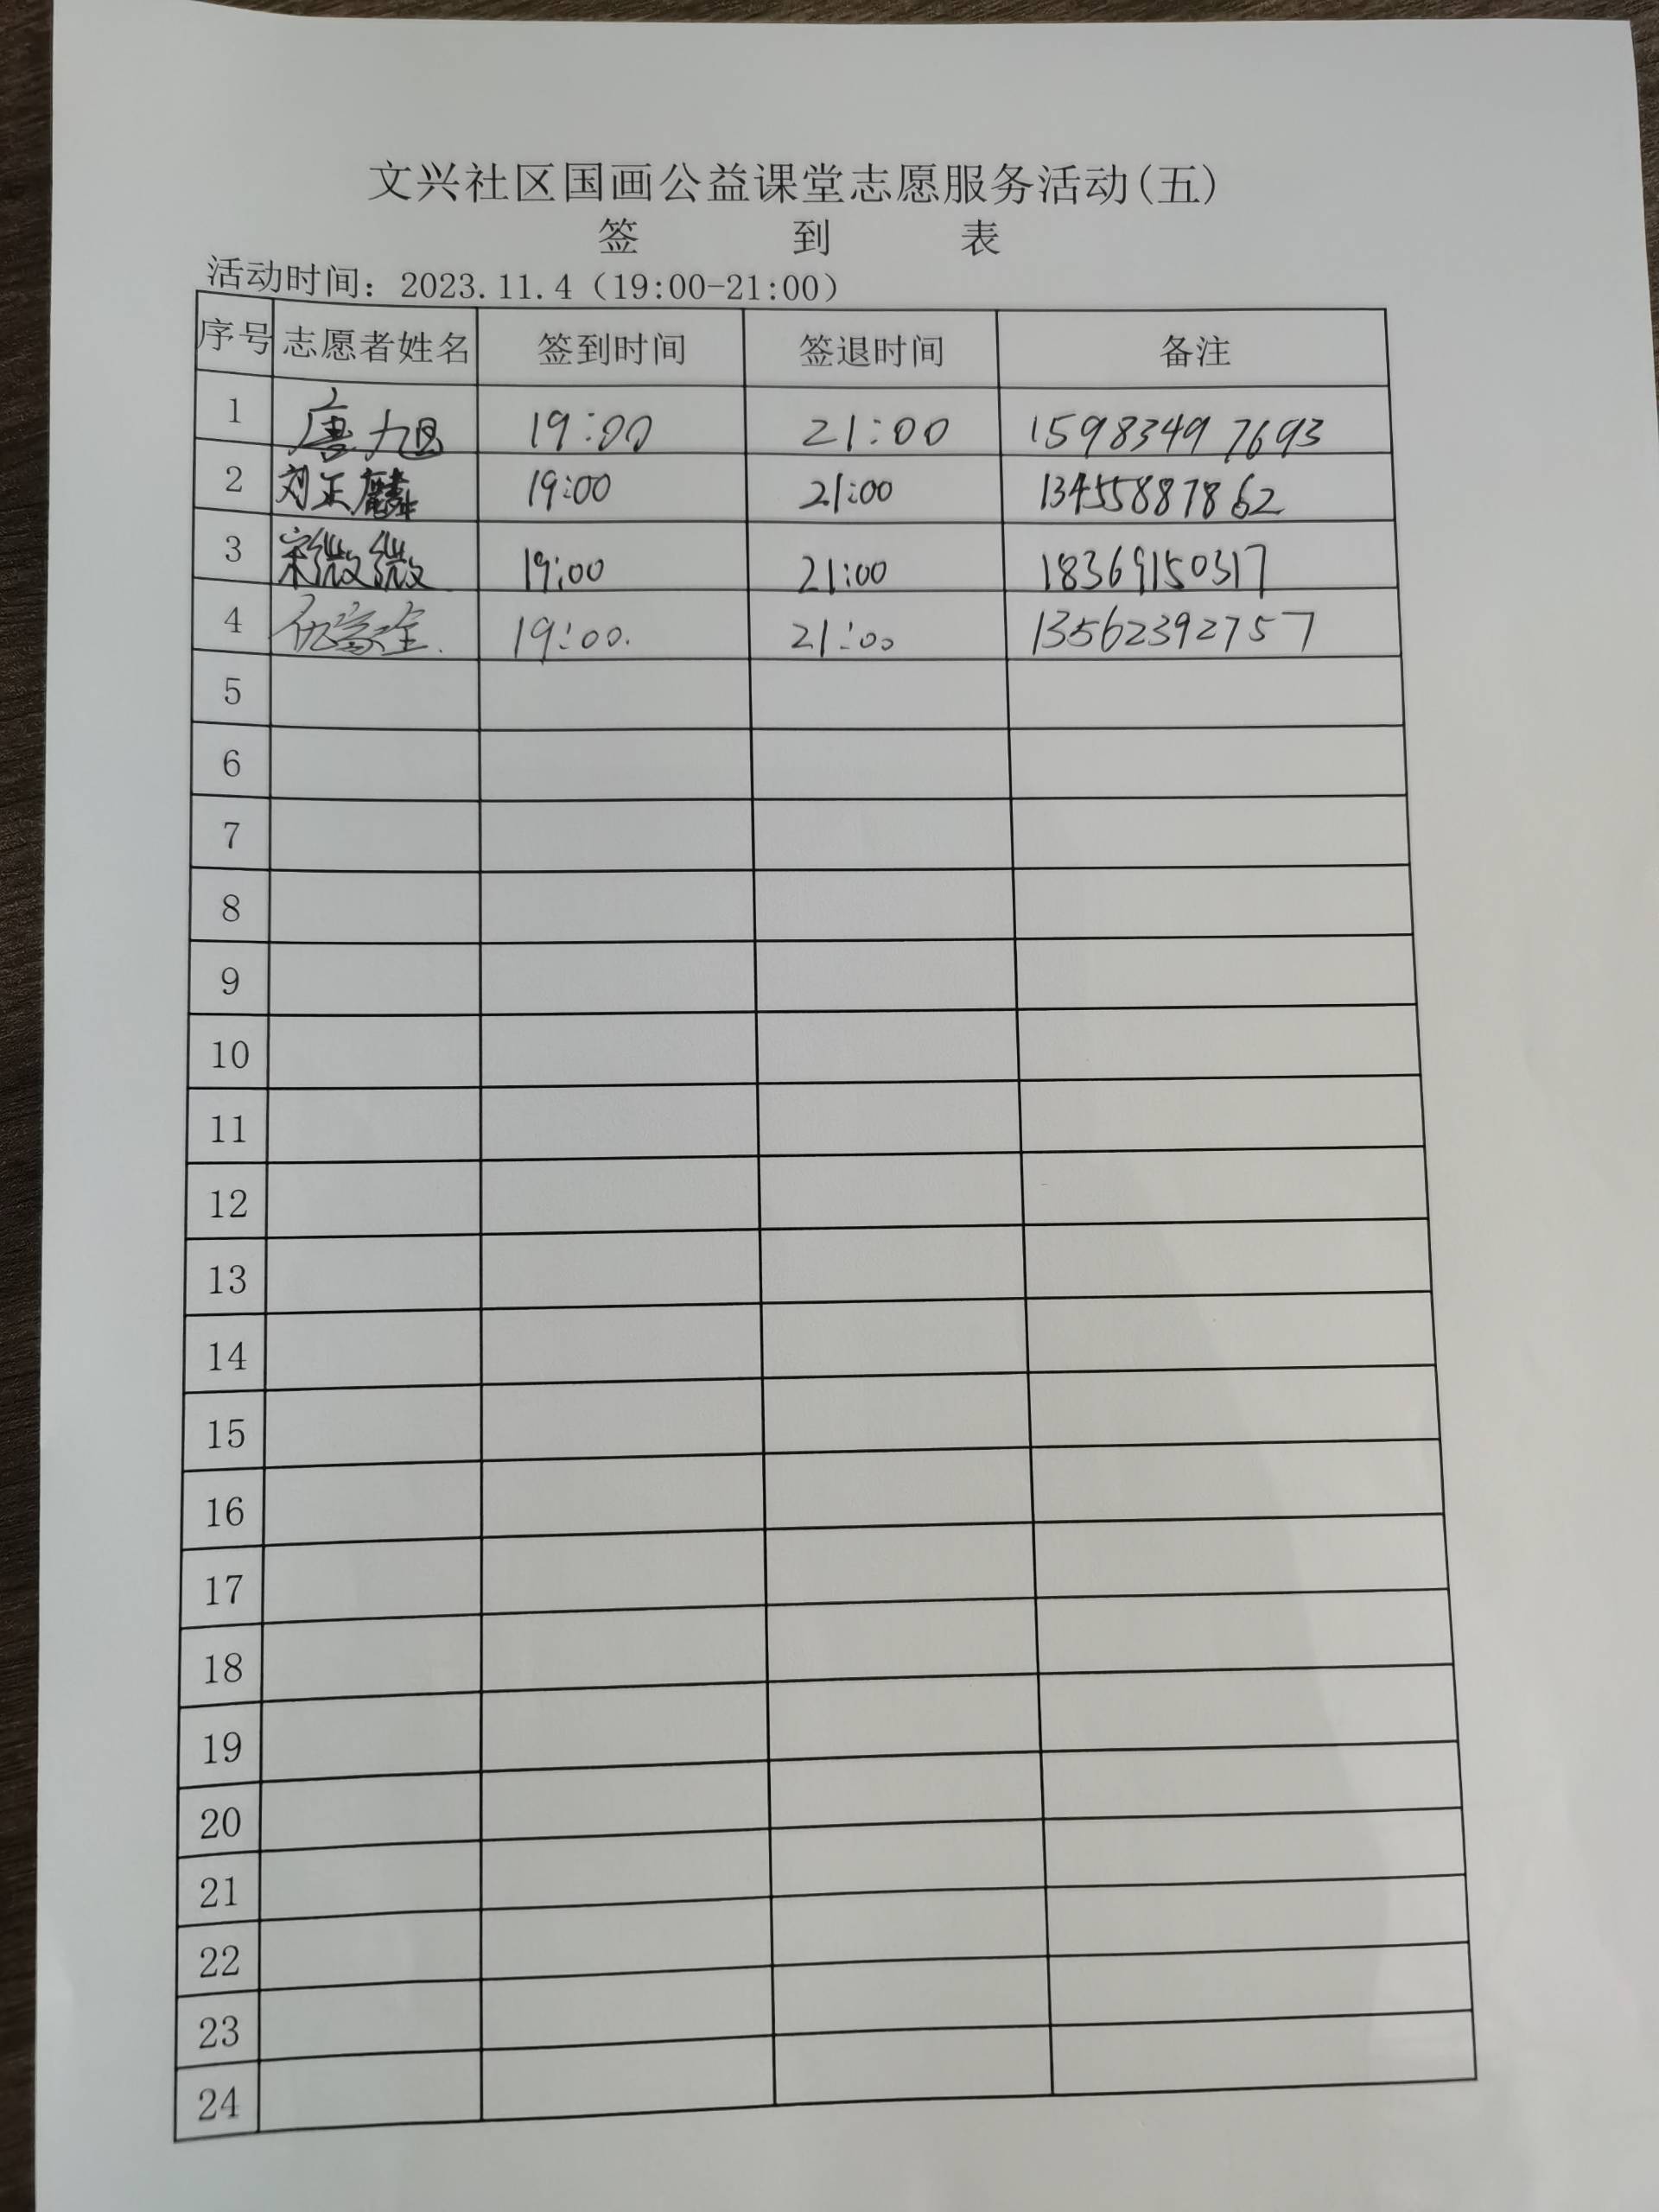 文兴社区国画公益课堂志愿服务活动(五)
签 到 表
活动时间：2023.11.4（19:00-21:00）
序号 志愿者姓名 签到时间 签退时间 备注
1 唐旭 19:00 21:00 15983497693
2 刘正麟 19:00 21:00 13455887862
3 宋微微 19:00 21:00 18369150317
4 19:00. 21:00 13562392757
5
6
7
8
9
10
11
12
13
14
15
16
17
18
19
20
21
22
23
24